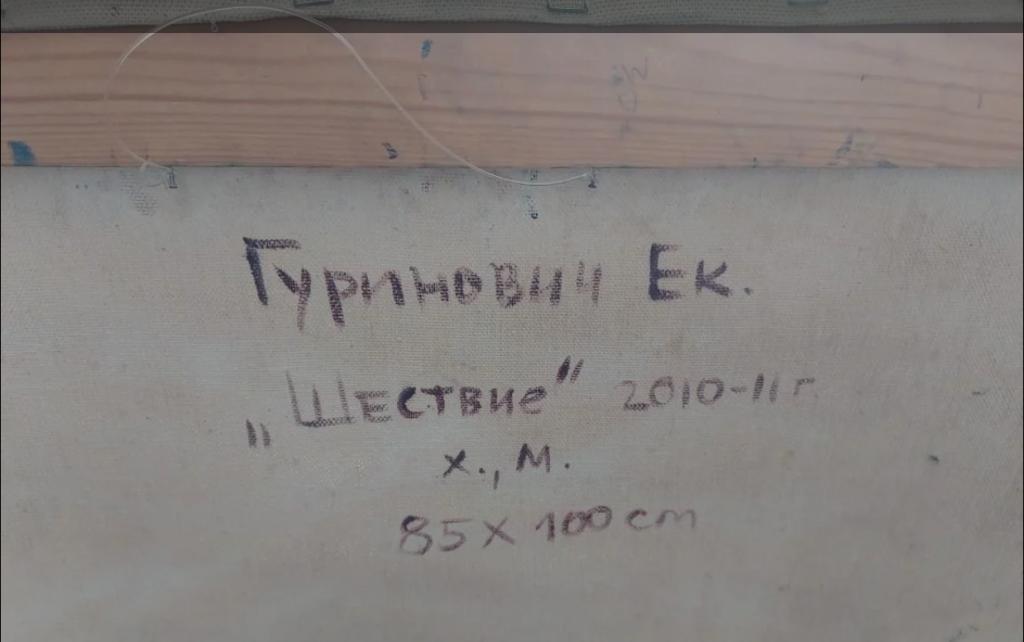 Гуринович Ек.
„Шествие" 2010-11 г.
х., м.
85 х 100 cm